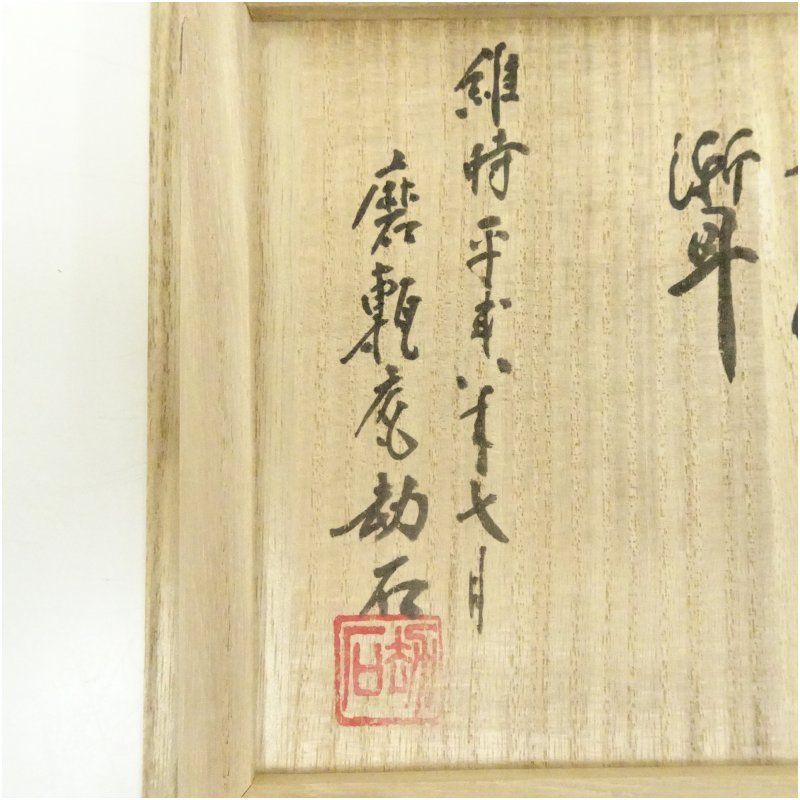 聻
維時平成八年七月
磨甎庵劫石
劫石